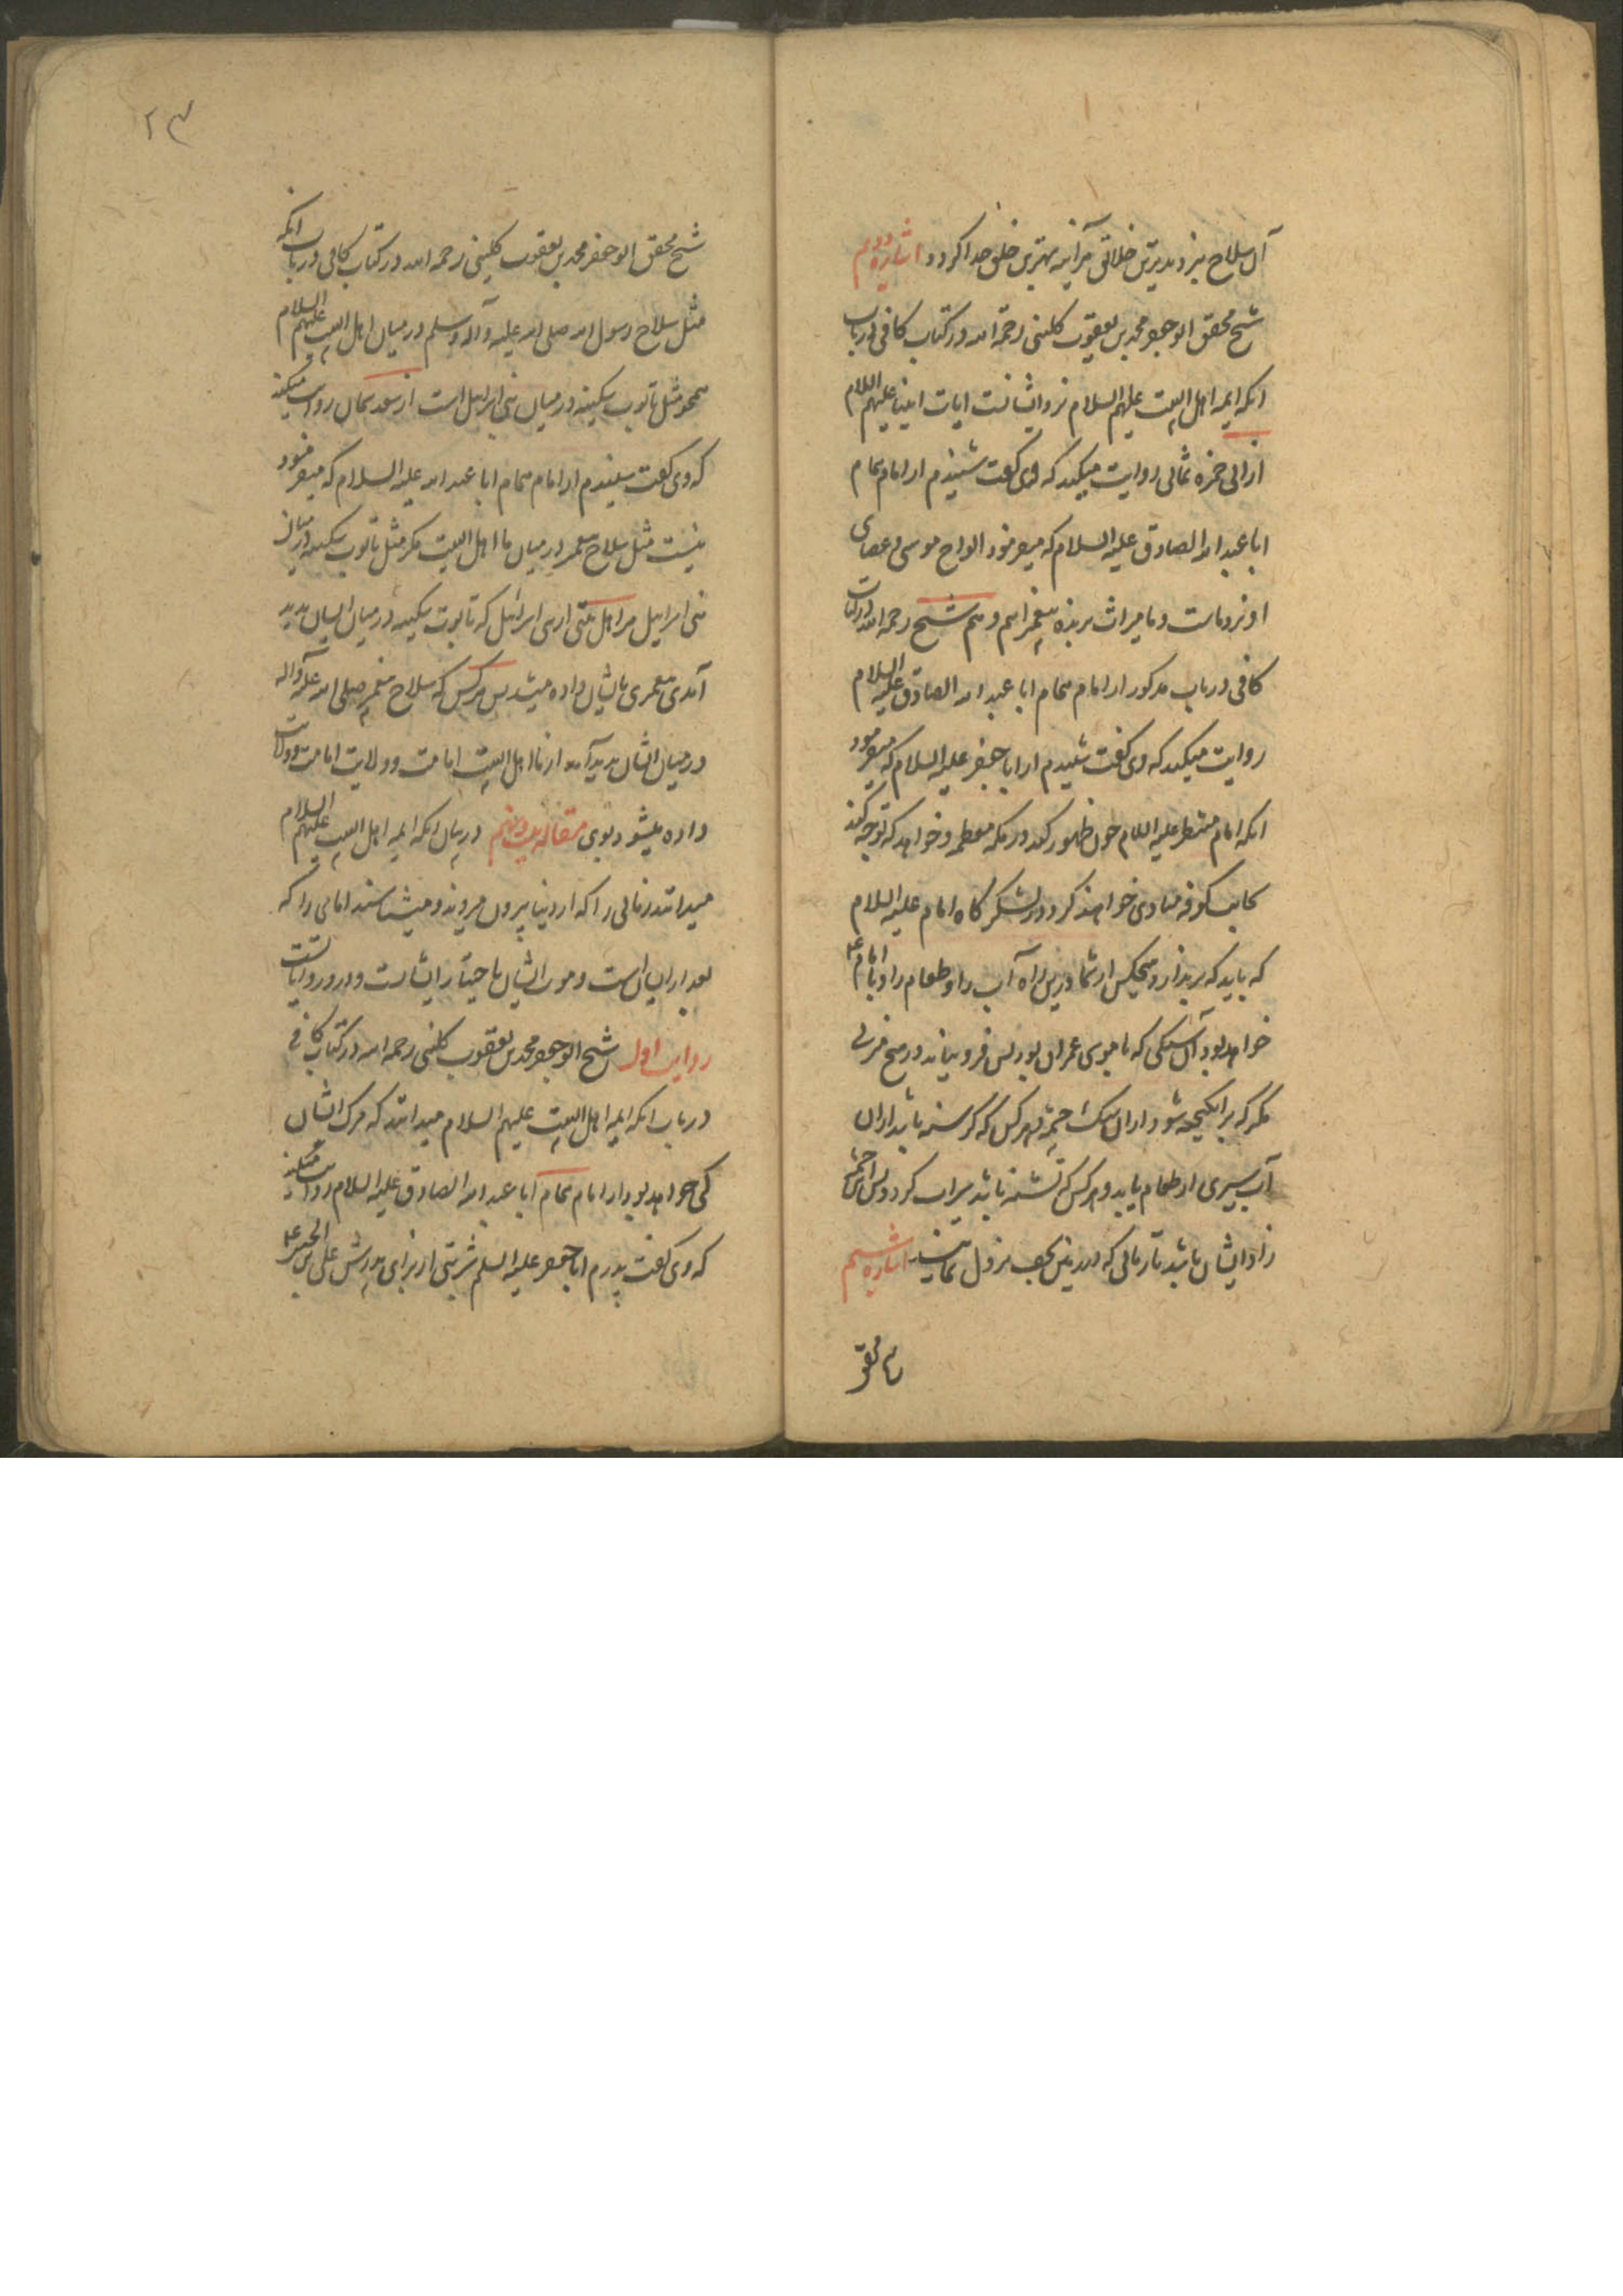 آن سلاح بنزد بدترین خلائق هرآینه بهترین خلق خدا گردد اشاره دویم
شیخ محقق ابو جعفر محمد بن یعقوب کلینی رحمة الله در کتاب کافی در باب
انکه ایمه اهل البیت علیهم السلام نزد ایشانست ایات انبیا علیهم السلام
از ابی حمزه ثمالی روایت میکند که وی گفت شنیدم از امام همام
ابا عبد الله الصادق علیه السلام که میفرمود الواح موسی و عصای
او نزد ماست و ما میراث برنده پیغمبرانیم و هم شیخ رحمه الله در کتاب
کافی در باب مذکور از امام همام ابا عبد الله الصادق علیه السلام
روایت میکند که وی گفت شنیدم از ابا جعفر علیه السلام که میفرمود
انکه امام منتظر علیه السلام چون ظهور کند در مکه معظمه و خواهد که توجه کند
بجانب کوفه منادی خواهند کرد در لشکر گاه امام علیه السلام
که باید که برندارد هیچکس از شما درین راه آب را و طعام را و با امام ع
خواهد بود آن سنگی که با موسی عمران بود پس فرو نیاید در هیچ منزلی
مگر که برانگیخته شود از آن سنگ چشمه و هر کس که گرسنه باشد از آن
آب سیری از طعام یابد و هر کس که تشنه باشد سیراب گردد پس آن چشمه
زاد ایشان باشد تا زمانی که در نجف نزول نمایند اشاره سیم
شیخ محقق
۲۳
شیخ محقق ابو جعفر محمد بن یعقوب کلینی رحمه الله در کتاب کافی در باب انکه
مثل سلاح رسول الله صلی الله علیه و آله وسلم در میان اهل البیت علیهم السلام
همچو مثل تابوت سکینه در میان بنی اسرائیل است از سعد سمان روایت میکند
که وی گفت شنیدم از امام همام ابا عبد الله علیه السلام که میفرمود
نیست مثل سلاح پیغمبر در میان ما اهل البیت مگر مثل تابوت سکینه در میان
بنی اسرائیل هر اهل بیتی از بنی اسرائیل که تابوت سکینه در میان ایشان پدید
آمدی پیغمبری بایشان داده میشد پس هر کس که سلاح پیغمبر صلی الله علیه وآله
در میان ایشان پدید آمد از ما اهل البیت امامت و ولایت امامت و ولایت
داده میشود بوی مقاله بیست و نهم در بیان انکه ایمه اهل البیت علیهم السلام
میدانند زمانی را که از دنیا بیرون میروند و میشناسند امامی را که
بعد از ایشان است و موت ایشان باختیار ایشانست و درو روایاتست
روایت اول شیخ ابو جعفر محمد بن یعقوب کلینی رحمه الله در کتاب کافی
در باب انکه ایمه اهل البیت علیهم السلام میدانند که مرگ ایشان
کی خواهد بود از امام همام ابا عبد الله الصادق علیه السلام روایت میکند
که وی گفت پدرم ابا جعفر علیه السلم شربتی از برای پدرش علی بن الحسین ع